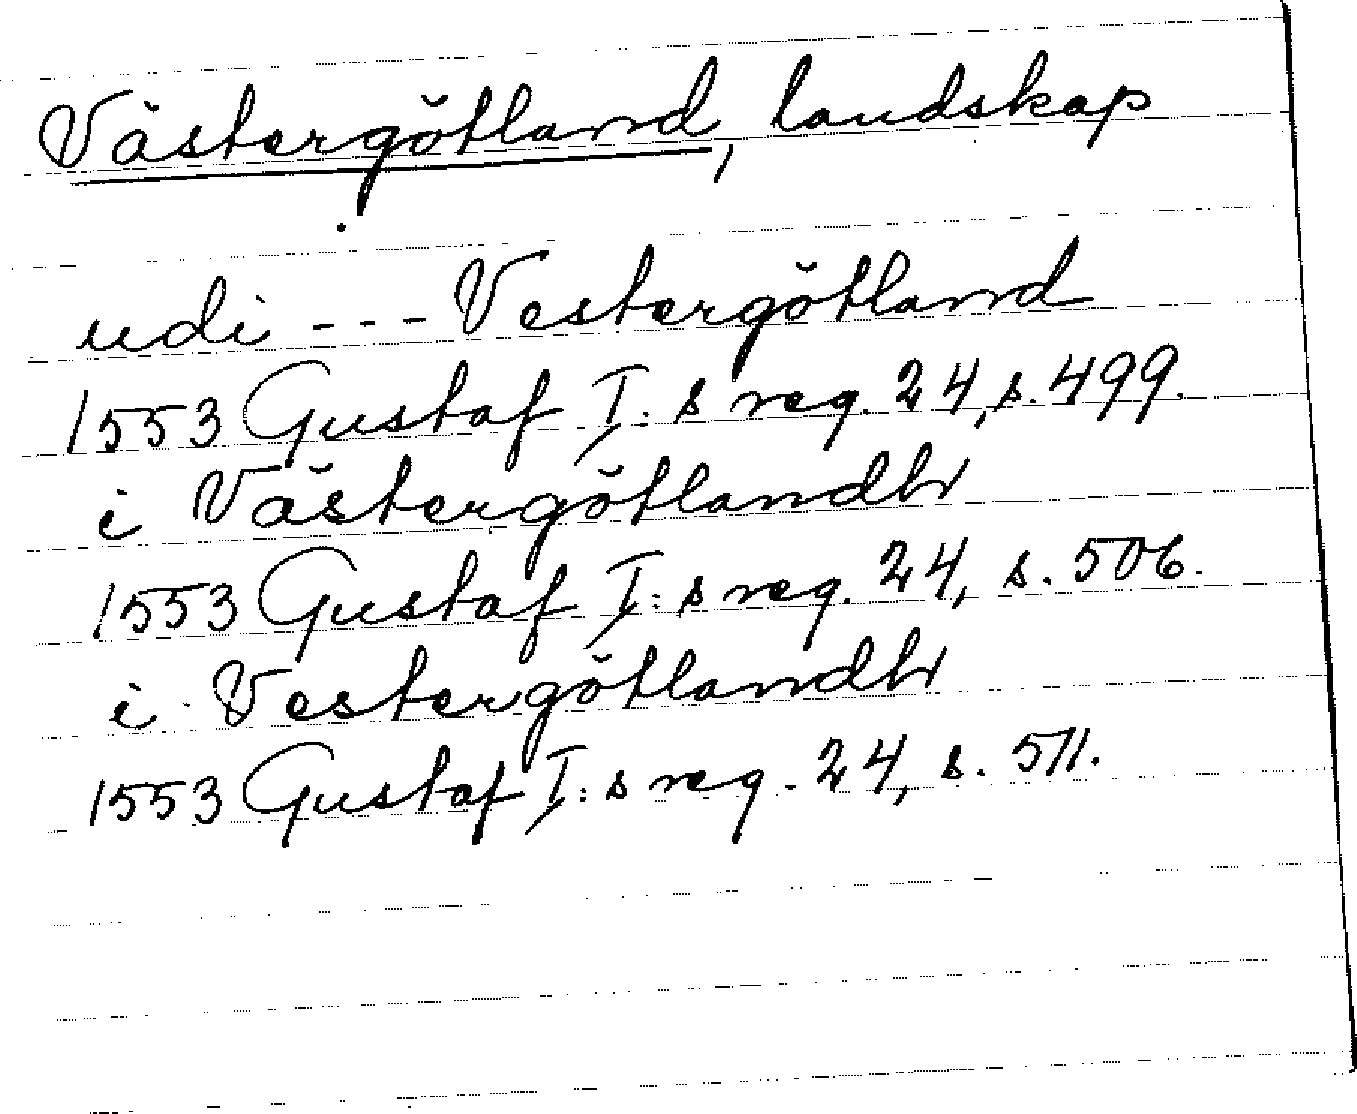 Västergötland, landskap
udi --- Vestergötland
1553 Gustaf I:s reg. 24, s. 499.
i Västergötlandh
1553 Gustaf I:s reg. 24, s. 506.
i Vestergötlandh
1553 Gustaf I:s reg. 24, s. 511.